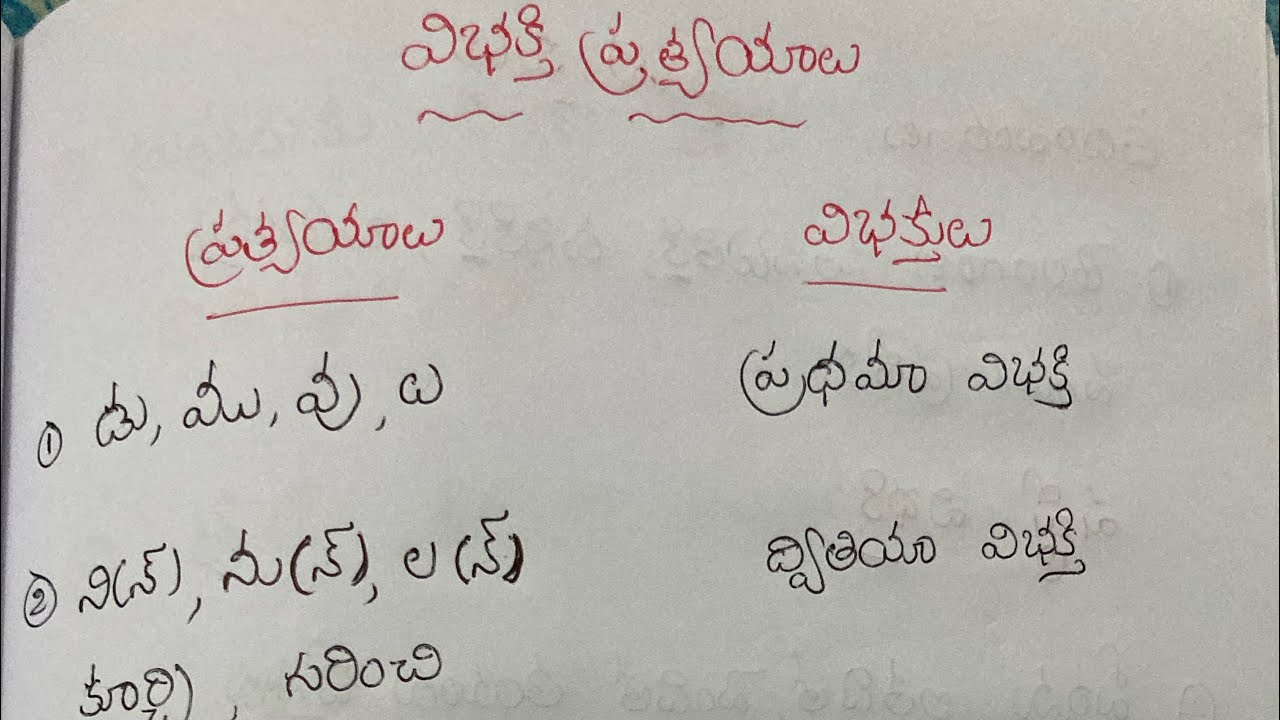 విభక్తి ప్రత్యయాలు
ప్రత్యయాలు విభక్తులు
① డు, ము, వు, లు ప్రధమా విభక్తి
② ని(న్), ను(న్), ల(న్) ద్వితియా విభక్తి
కూర్చి, గురించి